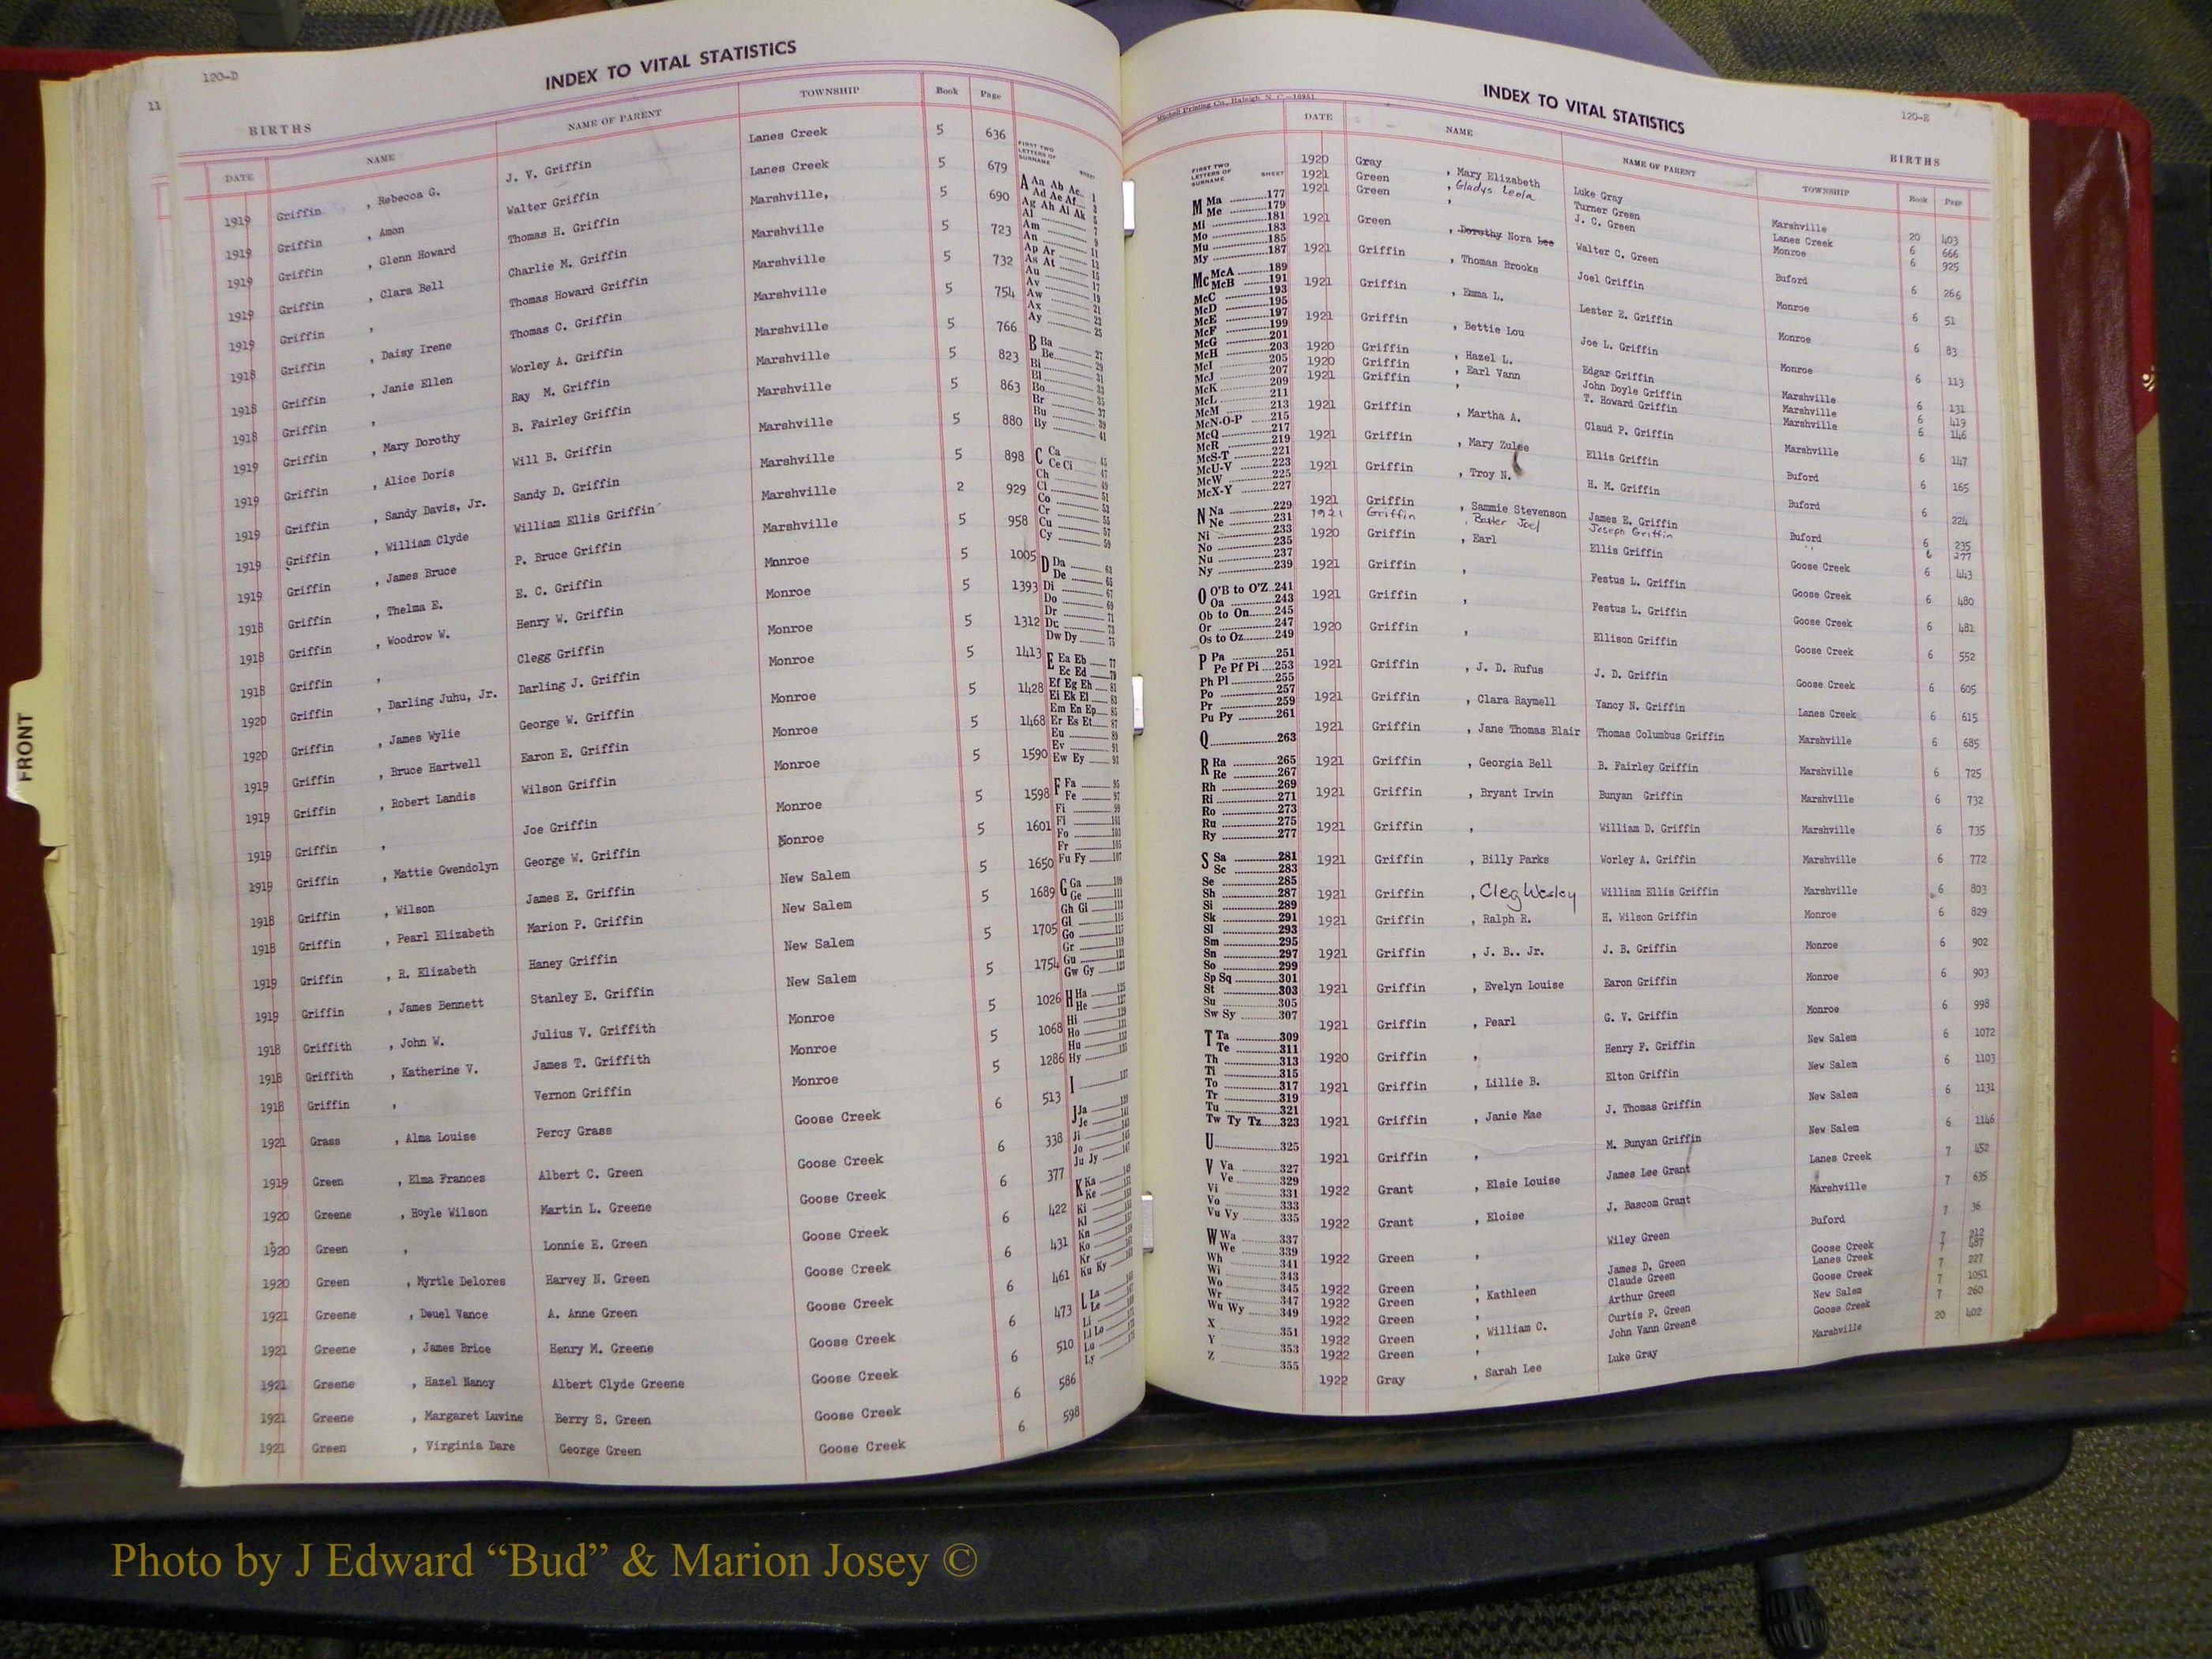 120-D
INDEX TO VITAL STATISTICS
11
BIRTHS
DATE NAME NAME OF PARENT TOWNSHIP Book Page
1919 Griffin , Rebecca G. J. V. Griffin Lanes Creek 5 636
1919 Griffin , Amon Walter Griffin Lanes Creek 5 679
1919 Griffin , Glenn Howard Thomas H. Griffin Marshville, 5 690
1919 Griffin , Clara Bell Charlie M. Griffin Marshville 5 723
1919 Griffin , Thomas Howard Griffin Marshville 5 732
1918 Griffin , Daisy Irene Thomas C. Griffin Marshville 5 754
1918 Griffin , Janie Ellen Worley A. Griffin Marshville 5 766
1918 Griffin , Ray M. Griffin Marshville 5 823
1919 Griffin , Mary Dorothy B. Fairley Griffin Marshville 5 863
1919 Griffin , Alice Doris Will B. Griffin Marshville 5 880
1919 Griffin , Sandy Davis, Jr. Sandy D. Griffin Marshville 5 898
1919 Griffin , William Clyde William Ellis Griffin Marshville 2 929
1919 Griffin , James Bruce P. Bruce Griffin Marshville 5 958
1918 Griffin , Thelma E. E. C. Griffin Monroe 5 1005
1918 Griffin , Woodrow W. Henry W. Griffin Monroe 5 1393
1918 Griffin , Clegg Griffin Monroe 5 1312
1920 Griffin , Darling Juhu, Jr. Darling J. Griffin Monroe 5 1413
1920 Griffin , James Wylie George W. Griffin Monroe 5 1428
1919 Griffin , Bruce Hartwell Earon E. Griffin Monroe 5 1468
1919 Griffin , Robert Landis Wilson Griffin Monroe 5 1590
1919 Griffin , Joe Griffin Monroe 5 1598
1919 Griffin , Mattie Gwendolyn George W. Griffin Monroe 5 1601
1918 Griffin , Wilson James E. Griffin New Salem 5 1650
1918 Griffin , Pearl Elizabeth Marion P. Griffin New Salem 5 1689
1919 Griffin , R. Elizabeth Haney Griffin New Salem 5 1705
1919 Griffin , James Bennett Stanley E. Griffin New Salem 5 1754
1918 Griffith , John W. Julius V. Griffith Monroe 5 1026
1918 Griffith , Katherine V. James T. Griffith Monroe 5 1068
1918 Griffin , Vernon Griffin Monroe 5 1286
1921 Grass , Alma Louise Percy Grass Goose Creek 6 513
1919 Green , Elma Frances Albert C. Green Goose Creek 6 338
1920 Greene , Hoyle Wilson Martin L. Greene Goose Creek 6 377
1920 Green , Lonnie E. Green Goose Creek 6 422
1920 Green , Myrtle Delores Harvey N. Green Goose Creek 6 431
1921 Greene , Deuel Vance A. Anne Green Goose Creek 6 461
1921 Greene , James Brice Henry M. Greene Goose Creek 6 473
1921 Greene , Hazel Nancy Albert Clyde Greene Goose Creek 6 510
1921 Greene , Margaret Luvine Berry S. Green Goose Creek 6 586
1921 Green , Virginia Dare George Green Goose Creek 6 598
FIRST TWO
LETTERS OF
SURNAME SHEET
A Aa Ab Ac 1
Ad Ae Af 3
Ag Ah Ai Ak 5
Al 7
Am 9
An 11
Ap Ar 13
As At 15
Au 17
Av 19
Aw 21
Ax 23
Ay 25
B Ba 27
Be 29
Bi 31
Bl 33
Bo 35
Br 37
Bu 39
By 41
C Ca 45
Ce Ci 47
Ch 49
Cl 51
Co 53
Cr 55
Cu 57
Cy 59
D Da 63
De 65
Di 67
Do 69
Dr 71
Du 73
Dw Dy 75
E Ea Eb 77
Ec Ed 79
Ef Eg Eh 81
Ei Ek El 83
Em En Ep 85
Er Es Et 87
Eu 89
Ev 91
Ew Ey 93
F Fa 95
Fe 97
Fi 99
Fl 101
Fo 103
Fr 105
Fu Fy 107
G Ga 109
Ge 111
Gh Gi 113
Gl 115
Go 117
Gr 119
Gu 121
Gw Gy 123
H Ha 125
He 127
Hi 129
Ho 131
Hu 133
Hy 135
I 137
J Ja 139
Je 141
Ji 143
Jo 145
Ju Jy 147
K Ka 149
Ke 151
Ki
Kl
Kn
Ko
Kr
Ku Ky
L La
Le
Li
Ll Lo
Lu
Ly
FRONT
Mitchell Printing Co., Raleigh, N. C.—10951
INDEX TO VITAL STATISTICS
120-E
BIRTHS
FIRST TWO
LETTERS OF
SURNAME SHEET
M Ma 177
Me 179
Mi 181
Mo 183
Mu 185
My 187
Mc McA 189
McB 191
McC 193
McD 195
McE 197
McF 199
McG 201
McH 203
McI 205
McJ 207
McK 209
McL 211
McM 213
McN-O-P 215
McQ 217
McR 219
McS-T 221
McU-V 223
McW 225
McX-Y 227
N Na 229
Ne 231
Ni 233
No 235
Nu 237
Ny 239
O O'B to O'Z 241
Oa 243
Ob to On 245
Or 247
Os to Oz 249
P Pa 251
Pe Pf Pi 253
Ph Pl 255
Po 257
Pr 259
Pu Py 261
Q 263
R Ra 265
Re 267
Rh 269
Ri 271
Ro 273
Ru 275
Ry 277
S Sa 281
Sc 283
Se 285
Sh 287
Si 289
Sk 291
Sl 293
Sm 295
Sn 297
So 299
Sp Sq 301
St 303
Su 305
Sw Sy 307
T Ta 309
Te 311
Th 313
Ti 315
To 317
Tr 319
Tu 321
Tw Ty Tz 323
U 325
V Va 327
Ve 329
Vi 331
Vo 333
Vu Vy 335
W Wa 337
We 339
Wh 341
Wi 343
Wo 345
Wr 347
Wu Wy 349
X 351
Y 353
Z 355
DATE NAME NAME OF PARENT TOWNSHIP Book Page
1920 Gray , Mary Elizabeth Luke Gray Marshville 20 403
1921 Green , Gladys Leola Turner Green Lanes Creek 6 666
1921 Green , J. C. Green Monroe 6 925
1921 Green , Dorothy Nora Lee Walter C. Green Buford 6 266
1921 Griffin , Thomas Brooks Joel Griffin Monroe 6 51
1921 Griffin , Emma L. Lester E. Griffin Monroe 6 83
1921 Griffin , Bettie Lou Joe L. Griffin Monroe 6 113
1920 Griffin , Hazel L. Edgar Griffin Marshville 6 131
1920 Griffin , Earl Vann John Doyle Griffin Marshville 6 419
1921 Griffin , T. Howard Griffin Marshville 6 146
1921 Griffin , Martha A. Claud P. Griffin Marshville 6 147
1921 Griffin , Mary Zulee Ellis Griffin Buford 6 165
1921 Griffin , Troy N. H. M. Griffin Buford 6 224
1921 Griffin , Sammie Stevenson James E. Griffin Buford 6 235
1921 Griffin , Butler Joel Joseph Griffin " 6 277
1920 Griffin , Earl Ellis Griffin Goose Creek 6 443
1921 Griffin , Festus L. Griffin Goose Creek 6 480
1921 Griffin , Festus L. Griffin Goose Creek 6 481
1920 Griffin , Ellison Griffin Goose Creek 6 552
1921 Griffin , J. D. Rufus J. D. Griffin Goose Creek 6 605
1921 Griffin , Clara Raymell Yancy N. Griffin Lanes Creek 6 615
1921 Griffin , Jane Thomas Blair Thomas Columbus Griffin Marshville 6 685
1921 Griffin , Georgia Bell B. Fairley Griffin Marshville 6 725
1921 Griffin , Bryant Irwin Bunyan Griffin Marshville 6 732
1921 Griffin , William D. Griffin Marshville 6 735
1921 Griffin , Billy Parks Worley A. Griffin Marshville 6 772
1921 Griffin , Cleg Wesley William Ellis Griffin Marshville 6 803
1921 Griffin , Ralph R. H. Wilson Griffin Monroe 6 829
1921 Griffin , J. B.. Jr. J. B. Griffin Monroe 6 902
1921 Griffin , Evelyn Louise Earon Griffin Monroe 6 903
1921 Griffin , Pearl G. V. Griffin Monroe 6 998
1920 Griffin , Henry F. Griffin New Salem 6 1072
1921 Griffin , Lillie B. Elton Griffin New Salem 6 1103
1921 Griffin , Janie Mae J. Thomas Griffin New Salem 6 1131
1921 Griffin , M. Bunyan Griffin New Salem 6 1146
1922 Grant , Elsie Louise James Lee Grant Lanes Creek 7 452
1922 Grant , Eloise J. Bascom Grant Marshville 7 635
1922 Green , Wiley Green Buford 7 36
1922 Green , James D. Green Goose Creek 7 212
1922 Green , Kathleen Claude Green Lanes Creek 7 487
1922 Green , Arthur Green Goose Creek 7 227
1922 Green , William C. Curtis P. Green New Salem 7 1051
1922 Green , John Vann Greene Goose Creek 7 260
1922 Gray , Sarah Lee Luke Gray Marshville 20 402
Photo by J Edward “Bud” & Marion Josey ©